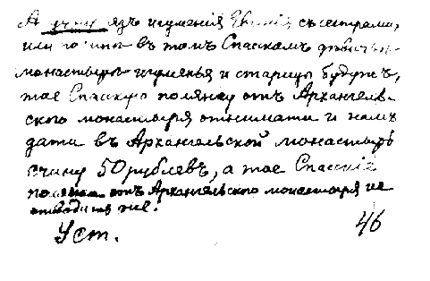 А учну язъ игуменія Евнія съ сестрами,
или по мнѣ въ томъ Спаскомъ дѣвичьи
монастырѣ игуменья и старицы будутъ,
тое Спаскую полянку отъ Архангельс-
ского монастыря отнимати и намъ
дати въ Архангельской монастырь
вчину 50 рублевъ, а тое Спаскіе
полянки отъ Архангельского монастыря не
отводити же.
Уст. 46